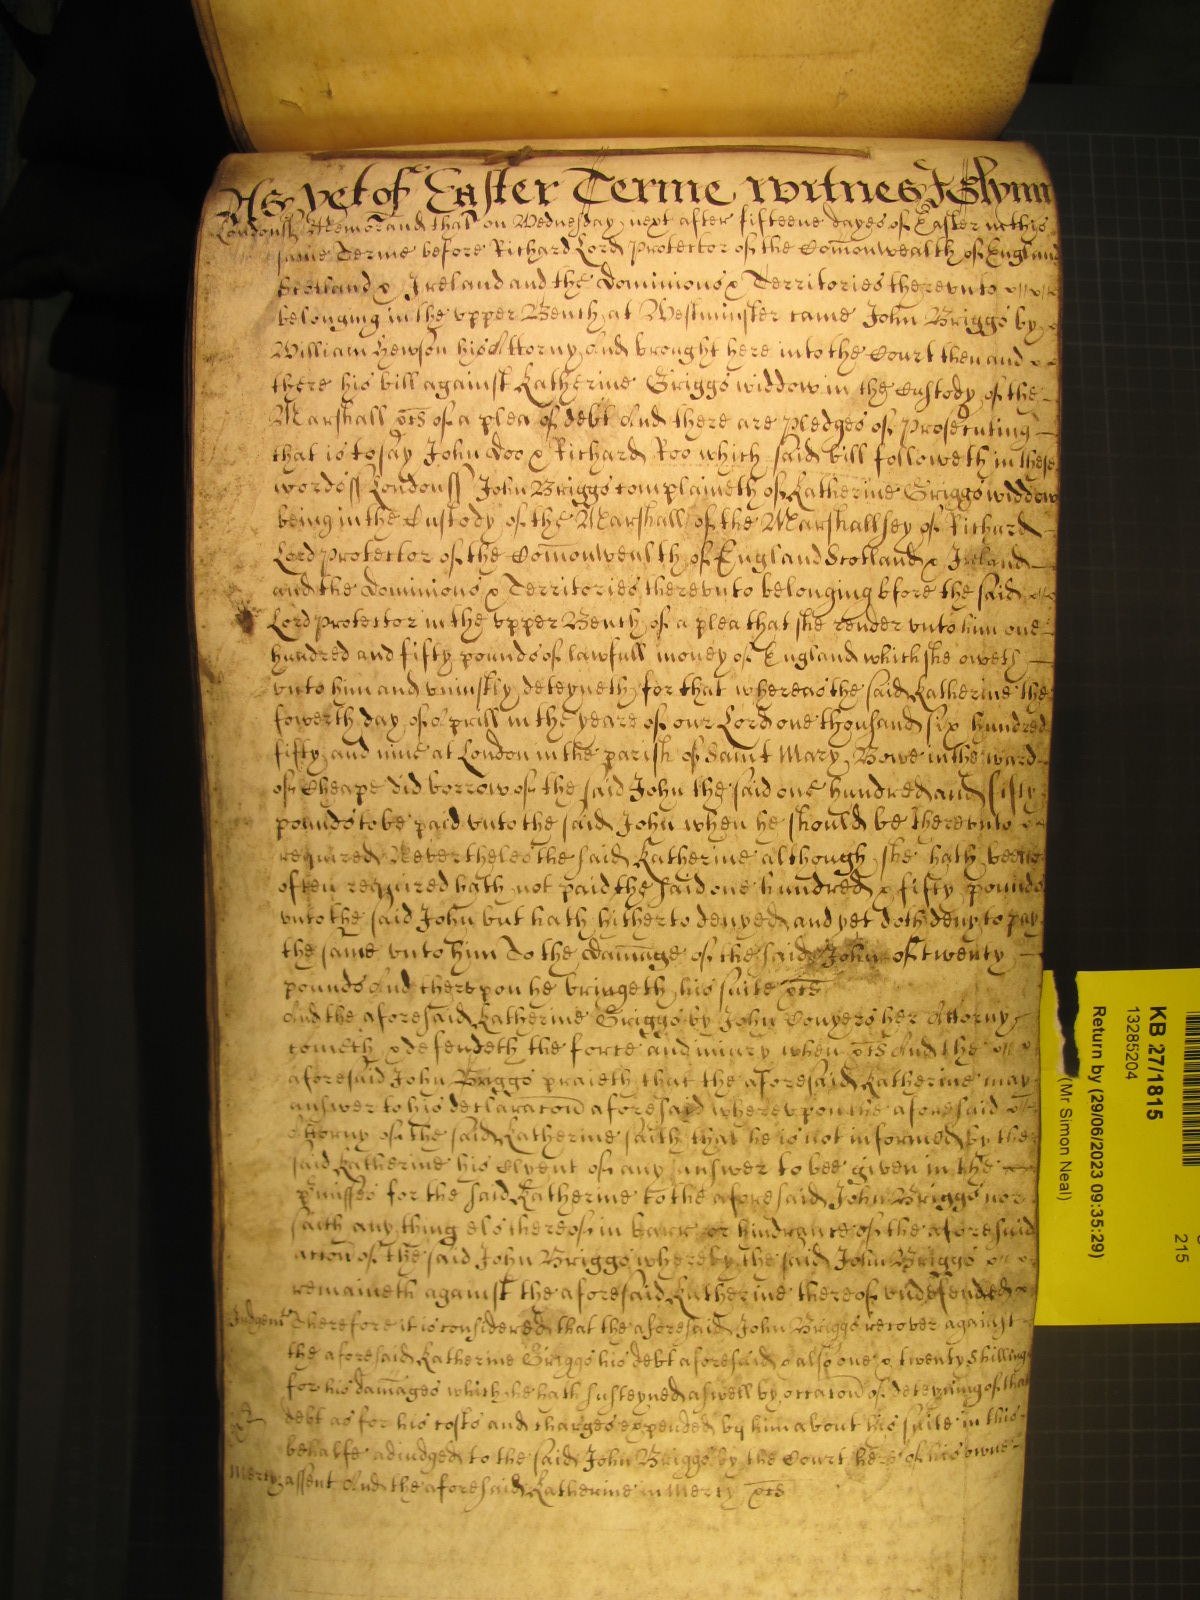 As yet of Easter Terme witnes J Glynn
Londonss Memorand that on Wednesday next after fifteene dayes of Easter in this
same Terme before Richard Lord Protector of the Comonwealth of England
Scotland & Ireland and the Dominions & Territories therevnto
belonging in the vpper Bench at Westminster came John Briggs by
William Hewson his Attorny And brought here into the Court then and
there his bill against Katherine Griggs widdow in the Custody of the
Marshall &c of a plea of debt And there are pledges of prosecuting
that is to say John Doo & Richard Roo which said bill followeth in these
words ss Londonss John Briggs complaineth of Katherine Griggs widdow
being in the Custody of the Marshall of the Marshallsey of Richard
Lord Protector of the Comonwealth of England Scotland & Ireland
and the Dominions & Territories therevnto belonging before the said
Lord Protector in the vpper Bench of a plea that she render vnto him one
hundred and fifty pounds of lawfull money of England which she oweth
vnto him and vniustly deteyneth for that whereas the said Katherine the
fowerth day of Aprill in the yeare of our Lord one thousand six hundred
fifty and nine at London in the parish of Saint Mary Bowe in the ward
of Cheape did borrow of the said John the said one hundred and fifty
pounds to be paid vnto the said John when he should be therevnto
required Neverthelesthe said Katherine although she hath beene
often required hath not paid the said one hundred & fifty pounds
vnto the said John but hath hitherto denyed and yet doth deny to pay
the same vnto him To the damage of the said John of twenty
pounds And therevpon he bringeth his suite &c
And the aforesaid Katherine Griggs by John Conyers her Attorny
cometh & defendeth the force and iniury when &c And the
aforesaid John Briggs praieth that the aforesaid Katherine may
answer to his declaracon aforesaid wherevpon the aforesaid
Attorny of the said Katherine saith that he is not informed by the
said Katherine his Clyent of any answer to bee given in the
pmisses for the said Katherine to the aforesaid John Briggs nor
saith any thing els thereof in barr or hindrance of the aforesaid
acon of the said John Briggs whereby the said John Briggs
remaineth against the aforesaid Katherine thereof vndefended
Judgemt Therefore it is considered that the aforesaid John Briggs recover against
the aforesaid Katherine Griggs his debt aforesaid & also one & twenty shillings
for his damages which he hath susteyned aswell by occacon of deteyning of that
debt as for his costs and charges expended by him about his suite in this
behalfe adiudged to the said John Briggs by the Court here of his owne
Mercy assent And the aforesaid Katherine in Mercy &c
KB 27/1815
13285204
Return by (29/06/2023 09:35:29)
(Mr Simon Neal)
215